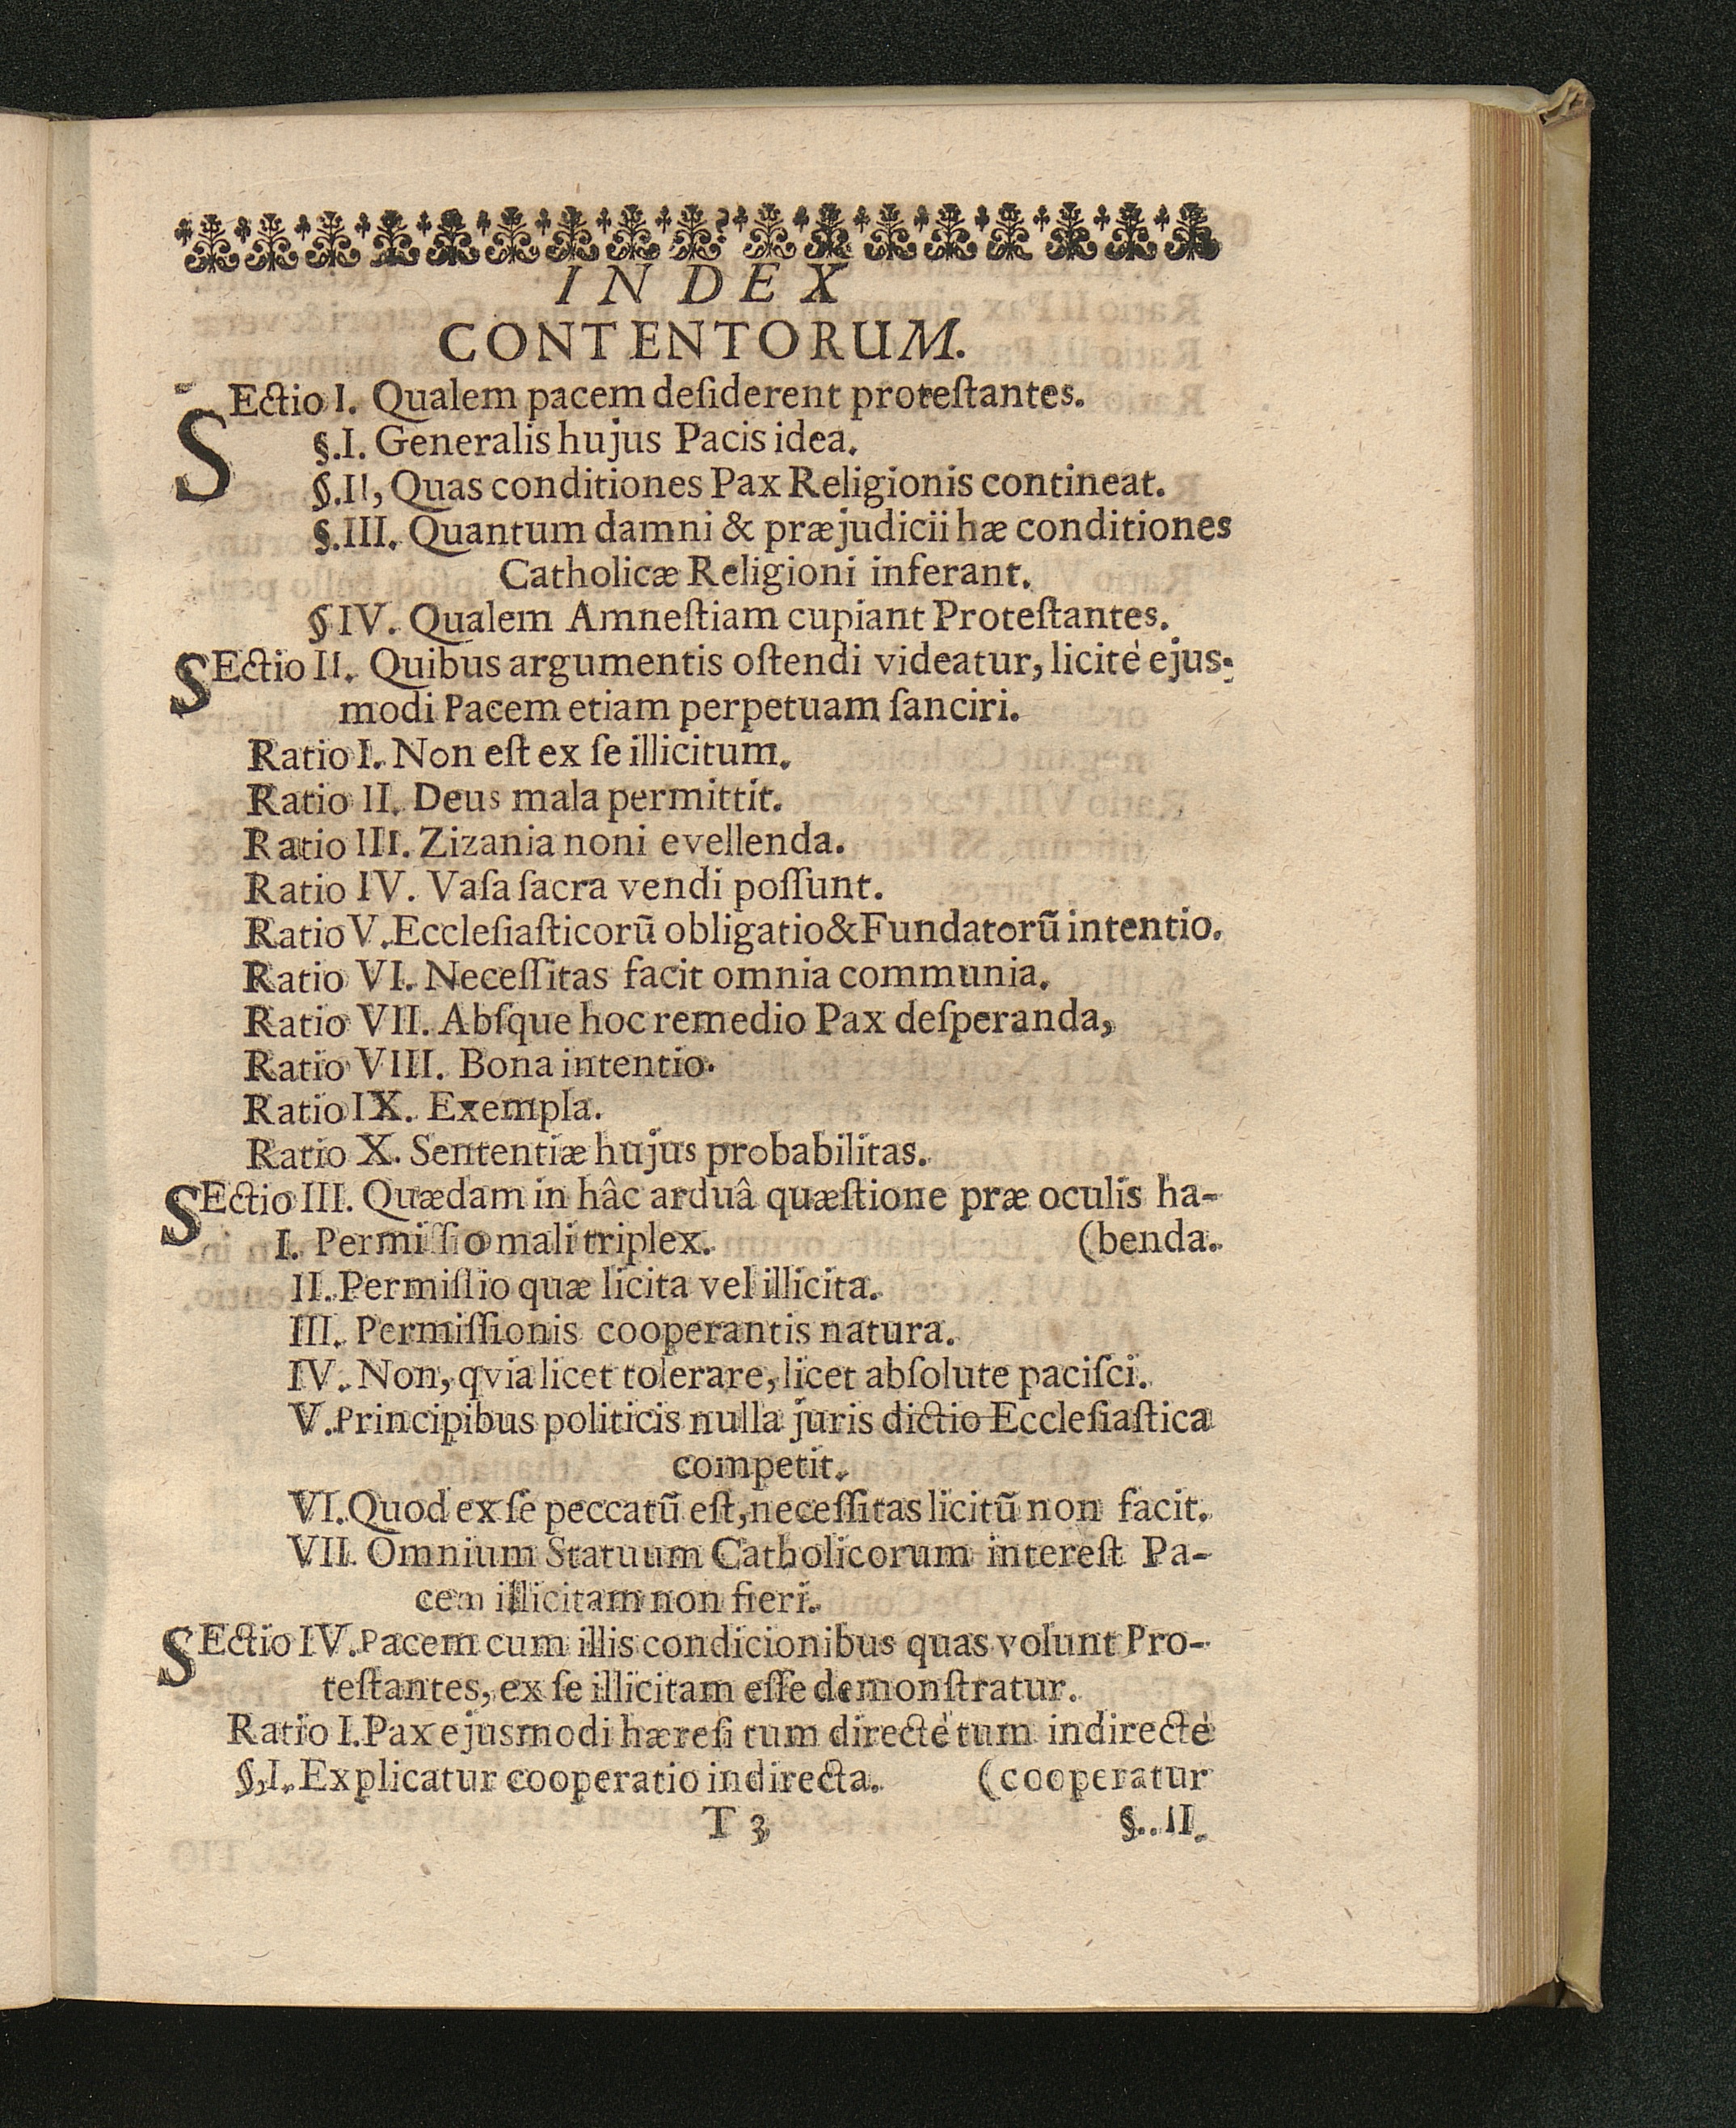 INDEX
CONTENTORUM.
SEctio I. Qualem pacem deſiderent proteſtantes.
§.I. Generalis hujus Pacis idea.
§.II, Quas conditiones Pax Religionis contineat.
§.III. Quantum damni & præjudicii hæ conditiones
Catholicæ Religioni inferant.
§ IV. Qualem Amneſtiam cupiant Proteſtantes.
SEctio II. Quibus argumentis oſtendi videatur, licitè ejus-
modi Pacem etiam perpetuam ſanciri.
Ratio I. Non eſt ex ſe illicitum.
Ratio II. Deus mala permittit.
Ratio III. Zizania noni evellenda.
Ratio IV. Vaſa ſacra vendi poſſunt.
Ratio V. Eccleſiaſticorũ obligatio & Fundatorũ intentio.
Ratio VI. Neceſſitas facit omnia communia.
Ratio VII. Abſque hoc remedio Pax deſperanda,
Ratio VIII. Bona intentio.
Ratio IX. Exempla.
Ratio X. Sententiæ hujus probabilitas.
SEctio III. Quædam in hâc arduâ quæſtione præ oculis ha-
I. Permiſſio mali triplex. (benda.
II. Permiſſio quæ licita vel illicita.
III. Permiſſionis cooperantis natura.
IV. Non, qvia licet tolerare, licet abſolute paciſci.
V. Principibus politicis nulla juris dictio Eccleſiaſtica
competit.
VI. Quod ex ſe peccatũ eſt, neceſſitas licitũ non facit.
VII. Omnium Statuum Catholicorum intereſt Pa-
cem illicitam non fieri.
SEctio IV. Pacem cum illis condicionibus quas volunt Pro-
teſtantes, ex ſe illicitam eſſe demonſtratur.
Ratio I. Pax ejusmodi hæreſi tum directè tum indirectè
§,I. Explicatur cooperatio indirecta. (cooperatur
T 3 §. II.